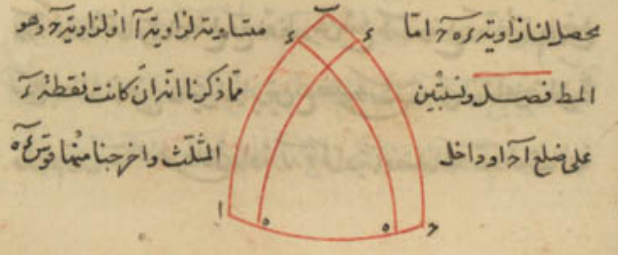 ب
محصل لنا زاوية ءه‍ح اما متساوية لزاوية آ او لزاوية ح وهو
ء ء
المط فصل ونبتين مما ذكرنا انه ان كانت نقطة ء
على ضلع آح او داخل المثلث واخرجنا منها قوس ءه
ا ه ه ح